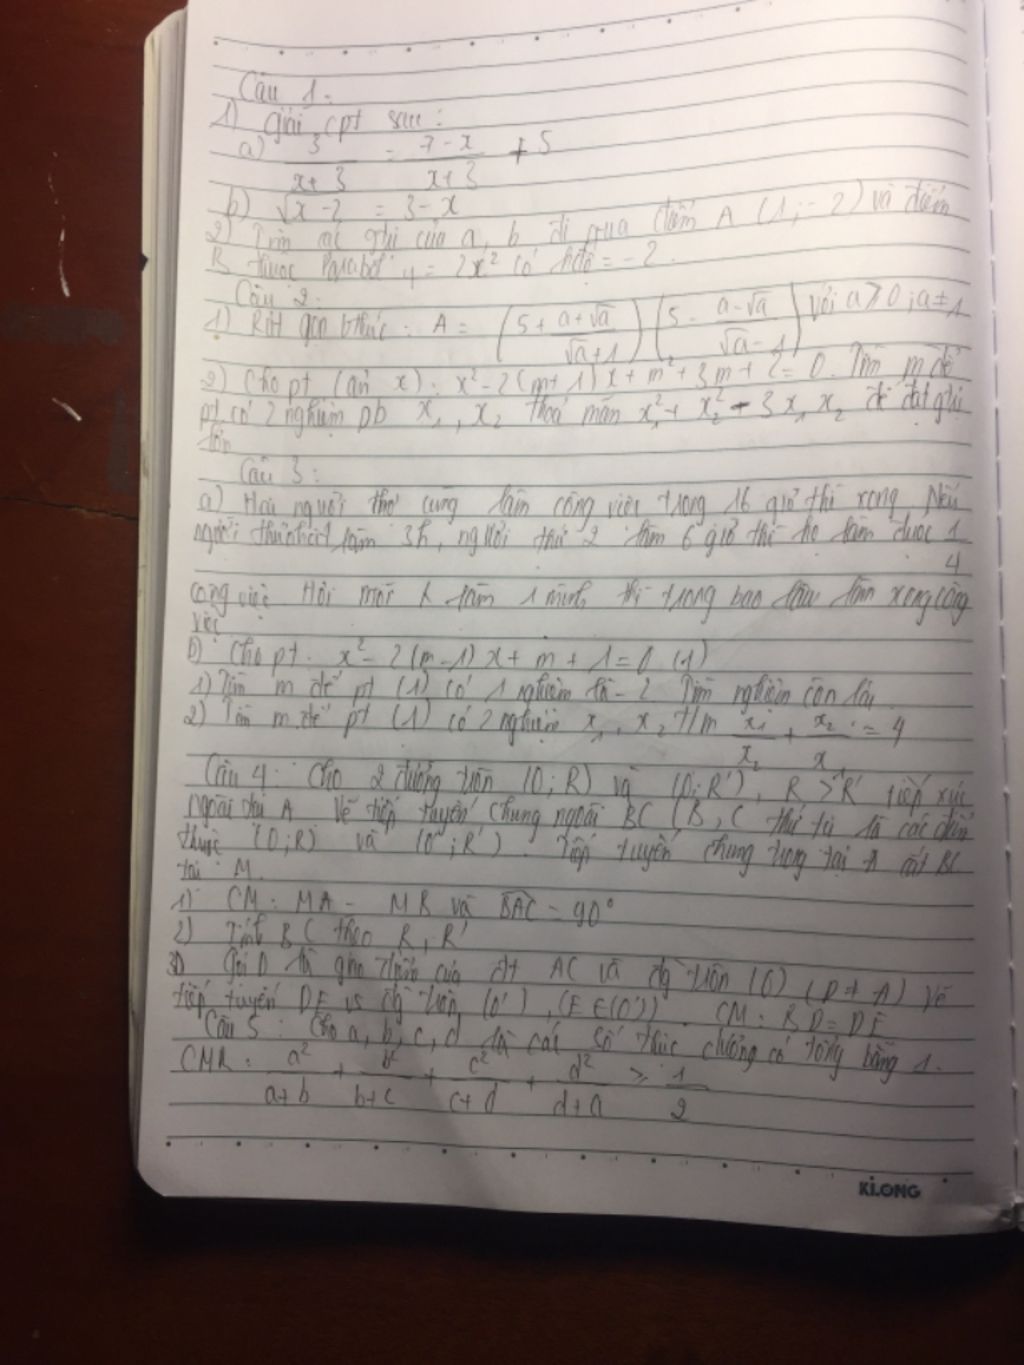 Câu 1.
1) Giải cpt sau:
a) 3/(x+3) = (7-x)/(x+3) + 5
b) √(x-2) = 3-x
2) Tìm các gtri của a, b đi qua điểm A (1; -2) và điểm
B thuộc Parabol y = 2x² có hđộ = -2.
Câu 2:
1) Rút gọn bthức: A = (5 + (a+√a)/(√a+1)) (5 - (a-√a)/(√a-1)) với a ≥ 0; a ≠ 1
2) Cho pt (ẩn x): x² - 2(m+1)x + m² + 3m + 2 = 0. Tìm m để
pt có 2 nghiệm pb x₁, x₂ thoả mãn x₁² + x₂² - 3x₁x₂ để đạt gtri
lớn
Câu 3:
a) Hai người thợ cùng làm công việc trong 16 giờ thì xong. Nếu
người thứ nhất làm 3h, người thứ 2 làm 6 giờ thì họ làm được 1/4
công việc. Hỏi mỗi làm 1 mình thì trong bao lâu làm xong công
việc
b) Cho pt. x² - 2(m-1)x + m + 1 = 0 (1)
1) Tìm m để pt (1) có 1 nghiệm là -2 Tìm nghiệm còn lại.
2) Tìm m để pt (1) có 2 nghiệm x₁, x₂ t/m x₁/x₂ + x₂/x₁ = 4
Câu 4: Cho 2 đường tròn (O; R) và (O; R'), R > R' tiếp xúc
ngoài tại A Vẽ tiếp tuyến chung ngoài BC (B, C thứ tự là các điểm
thuộc (O; R) và (O'; R'). Tiếp tuyến chung trong tại A cắt BC
tại M.
1) CM: MA = MB và BAC = 90°
2) Tính BC theo R, R'
3) Gọi D là giao điểm của đt AC và đg tròn (O) (D ≠ A) vẽ
tiếp tuyến DE vs đg tròn (O'), (E ∈ (O')). CM: BD = DE
Câu 5: Cho a, b, c, d là các số thực dương có tổng bằng 1.
CMR: a²/(a+b) + b²/(b+c) + c²/(c+d) + d²/(d+a) ≥ 1/2
KLONG